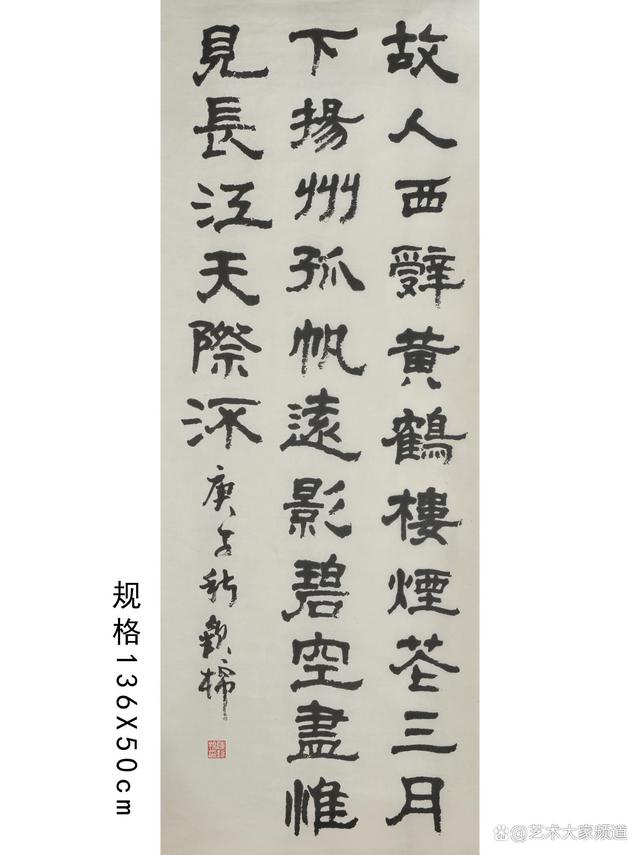 故人西辭黄鶴樓煙花三月
下揚州孤帆遠影碧空盡惟
見長江天際流
庚子秋
规格136X50cm
@艺术大家频道